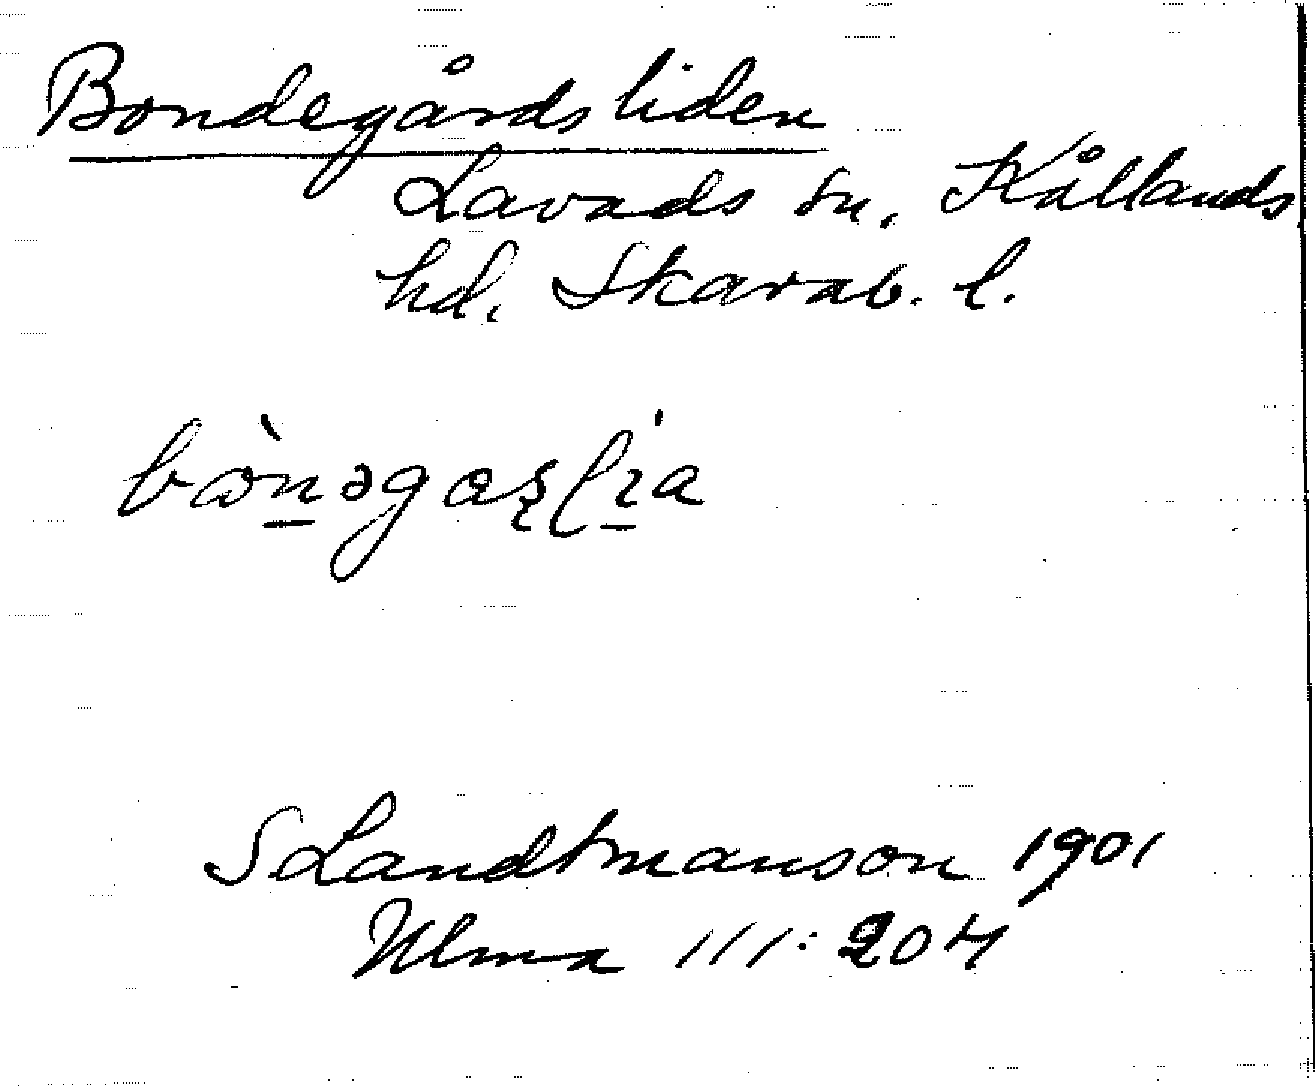 Bondegårdsliden
Lavads sn. Kållands
hd. Skarab. l.
S Landtmanson 1901
Ulma 111: 204